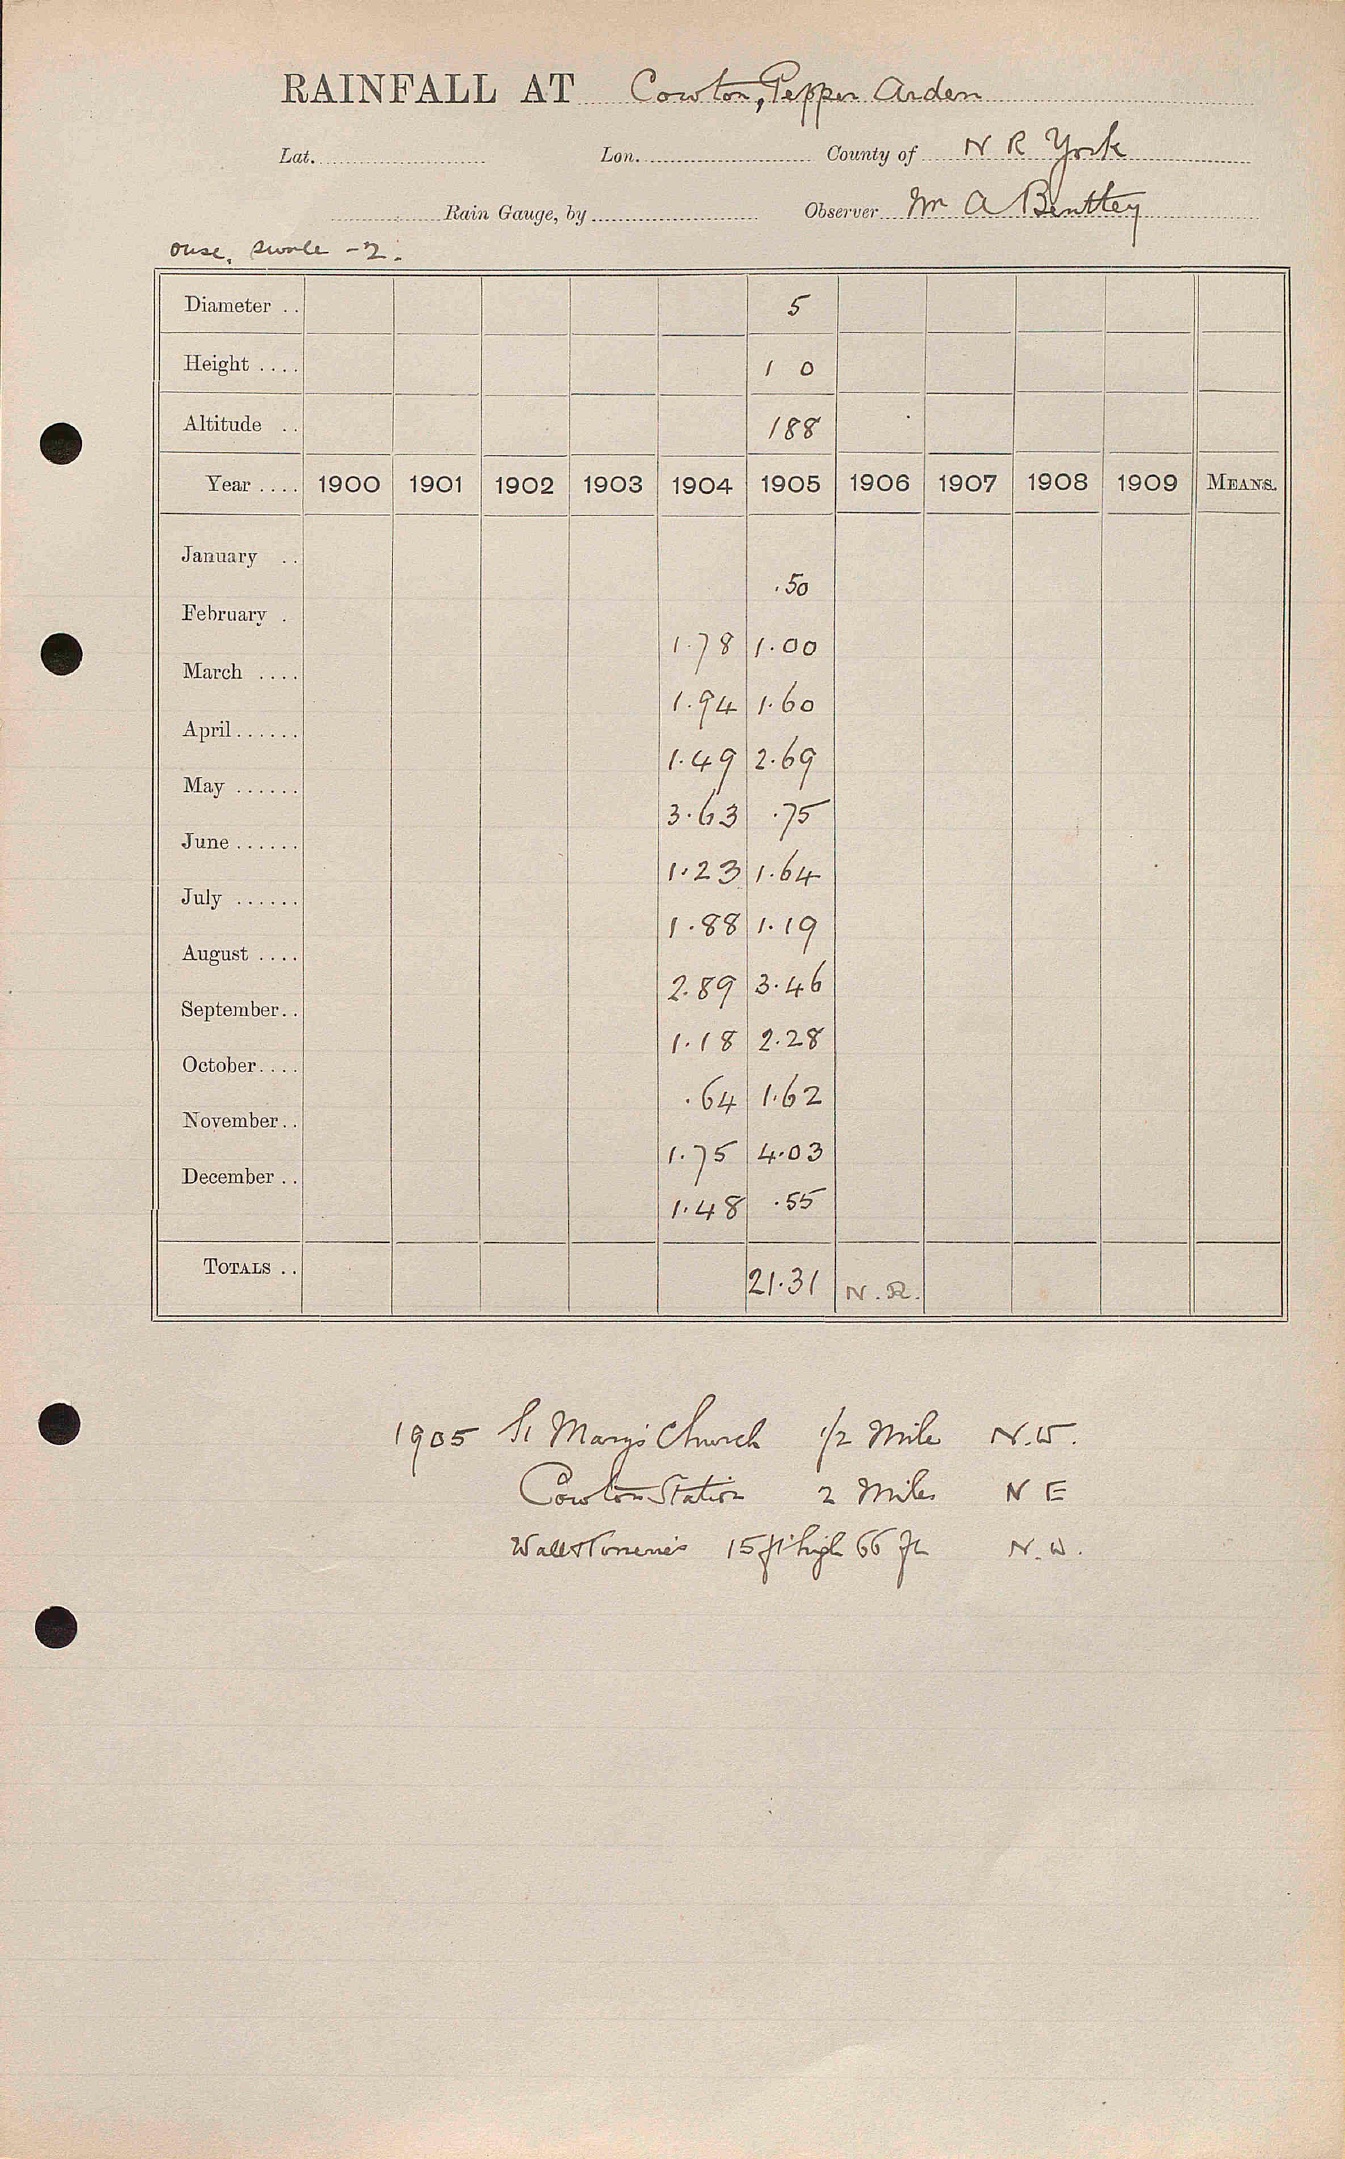 RAINFALL AT Cowton, Pepper Arden
Lat. Lon. County of N R York
Rain Gauge, by Observer Mr A Benttey
Ouse, Swale - 2.
Diameter .. 5
Height .... 1 0
Altitude .. 188
Year .... 1900 1901 1902 1903 1904 1905 1906 1907 1908 1909 MEANS.
January .. .50
February . 1.78 1.00
March .... 1.94 1.60
April ...... 1.49 2.69
May ...... 3.63 .75
June ...... 1.23 1.64
July ...... 1.88 1.19
August .... 2.89 3.46
September .. 1.18 2.28
October .... .64 1.62
November .. 1.75 4.03
December .. 1.48 .55
TOTALS .. 21.31 N.R.
1905 St Mary's Church 1/2 Mile N.W.
Cowton Station 2 Miles N E
15 ft high 66 ft N.W.